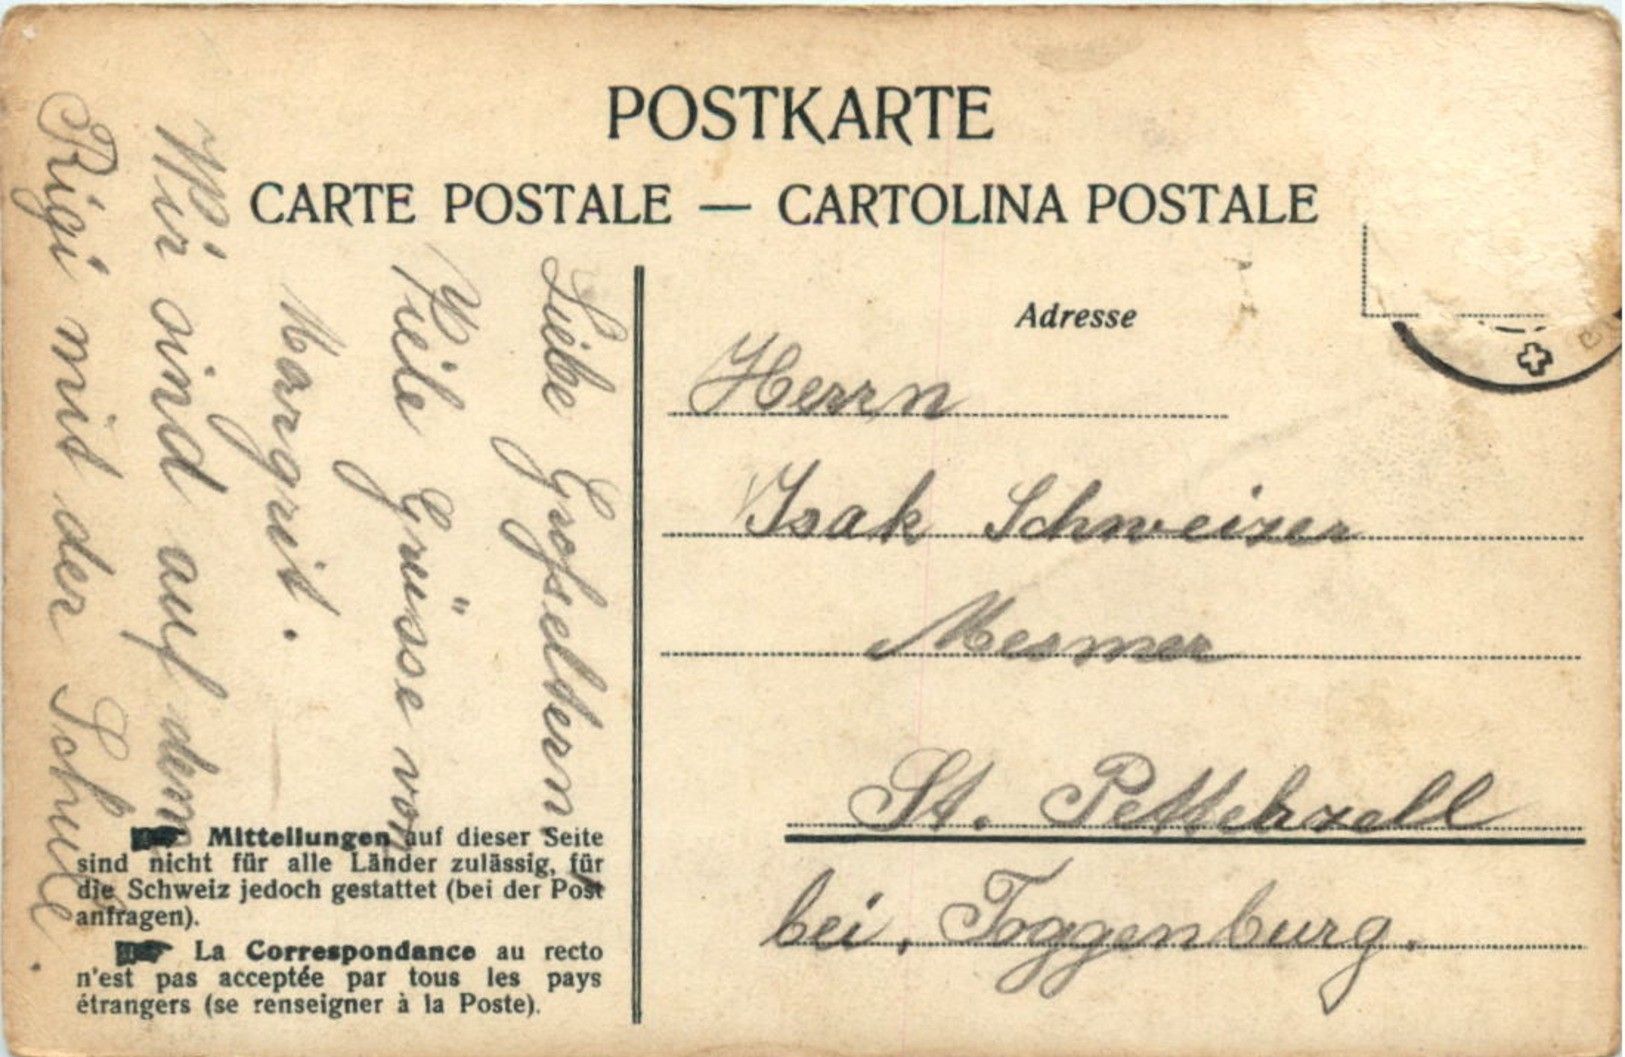 POSTKARTE
CARTE POSTALE — CARTOLINA POSTALE
Liebe Groſseltern
Viele Grüsse von
Margrit.
Wir sind auf dem
Rigi mit der Schule.
Mitteilungen auf dieser Seite
sind nicht für alle Länder zulässig, für
die Schweiz jedoch gestattet (bei der Post
anfragen).
La Correspondance au recto
n'est pas acceptée par tous les pays
étrangers (se renseigner à la Poste).
Adresse
Herrn
Isak Schweizer
Mesmer
St. Petterzell
bei, Toggenburg.